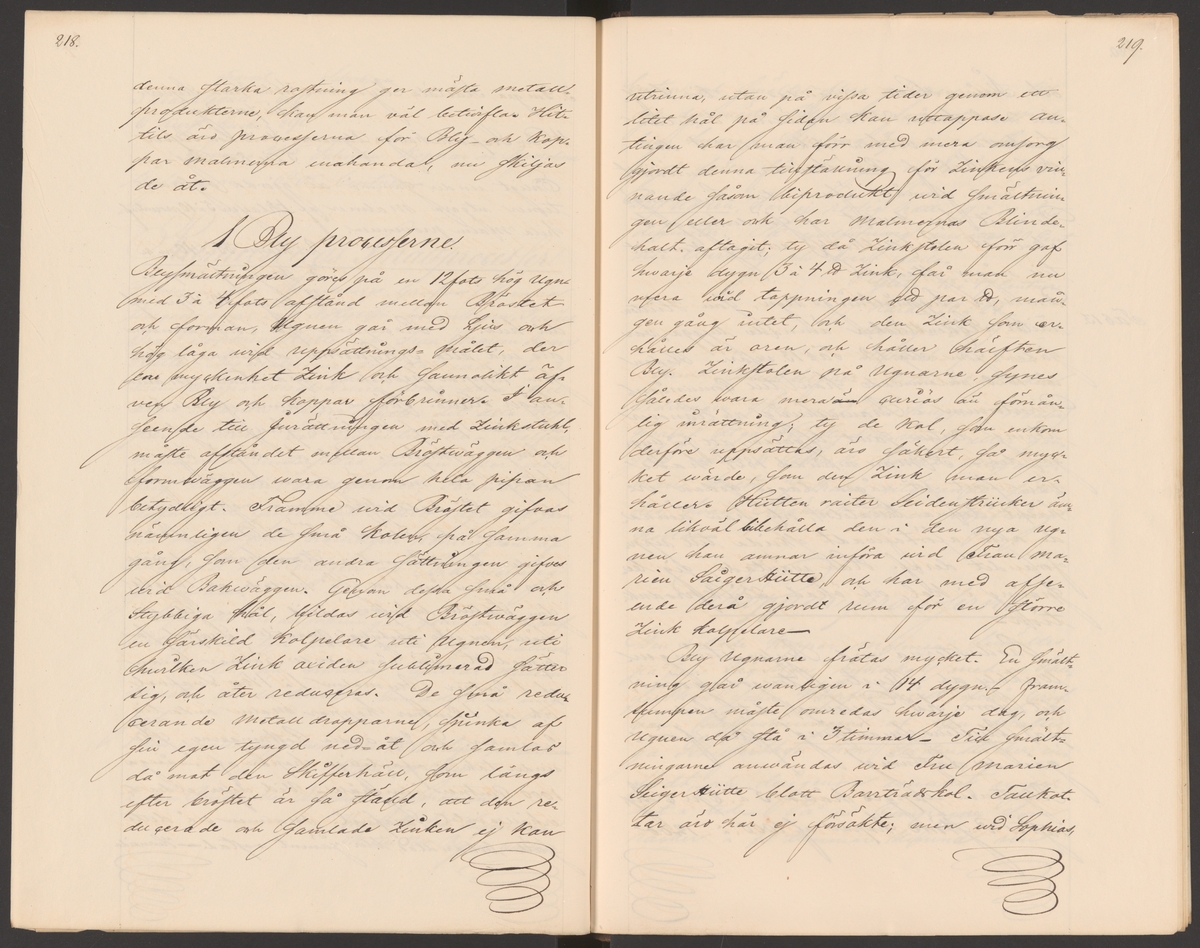 218.
denna starka rostning ger mästa metall-
produkterne, kan man väl betvifla. Hit-
tils äro processerna för Bly- och Kop-
par malmerna enahanda, nu skiljas
de åt.
1 Bly processerne.
Blysmältningen göres på en 12 fots hög Ugn
med 3 à 4 fots afstånd mellan Bröstet
och forman, Ugnen går med ljus och
hög låga wid uppsättnings-målet, der
en myckenhet Zink och sannolikt äf-
ven Bly och Koppar förbrinner. I an-
seende till Inrättningen med Zinkstuhl,
måste afståndet mellan Bröstwäggen och
formwäggen wara genom hela pipan
betydligt. Framme wid Bröstet gifvas
nämnligen de små Kolen, på samma
gång, som den andra sättningen gifves
wid Bakwäggen. Genom dessa små och
stybbiga kål, bildas wid Bröstwäggen
en särskild Kolpelare uti Ugnen, uti
hwilken Zink oxiden sublimerad sätter
sig, och åter reduceras. De små redu-
cerande Metall dropparne, sjunka af
sin egen tyngd ned-åt och samlas
då mot den Skifferhäll, som längs
efter bröstet är så ställd, att den re-
ducerade och samlade Zinken ej kan
219.
utrinna, utan på vissa tider genom ett
litet hål på sidan kan uttappas. An-
tingen har man förr med mera omsorg
gjordt denna tillställning för Zinkens vin-
nande såsom biprodukt wid smältnin-
gen, eller och har Malmernas Blinde-
halt aftagit; ty då Zinkstolen förr gaf
hwarje dygn 3 à 4 ℔ Zink, får man nu
ofta wid tappningen ett par ℔, mån-
gen gång intet, och den Zink som er-
hålles är oren, och håller hälften
Bly. Zinkstolen på Ugnarne, synes
således wara mera curiös än förmån-
lig inrättning; ty de Kol, som enkom
derföre uppsättas, äro säkert, så myc-
ket wärde, som den Zink man er-
håller. Hütten raiter Seidensticker äm-
na likväl bibehålla den i den nya Ug-
nen han ämnar införa wid Frau Ma-
rien Saiger Hütte, och har med afse-
ende derå gjordt rum för en större
Zink Kolpelare—
Bly Ugnarne frätas mycket. En smält-
ning går wanligen i 14 dygn. – Fram-
stumpen måste omredas hwarje dag, och
Ugnen då stå i 3 timmar – Till smält-
ningarne anwändas wid Frau Marien
Seiger Hütte blott Barrträdskol. Tallkot-
tar äro här ej försökte; men wid Sophias,